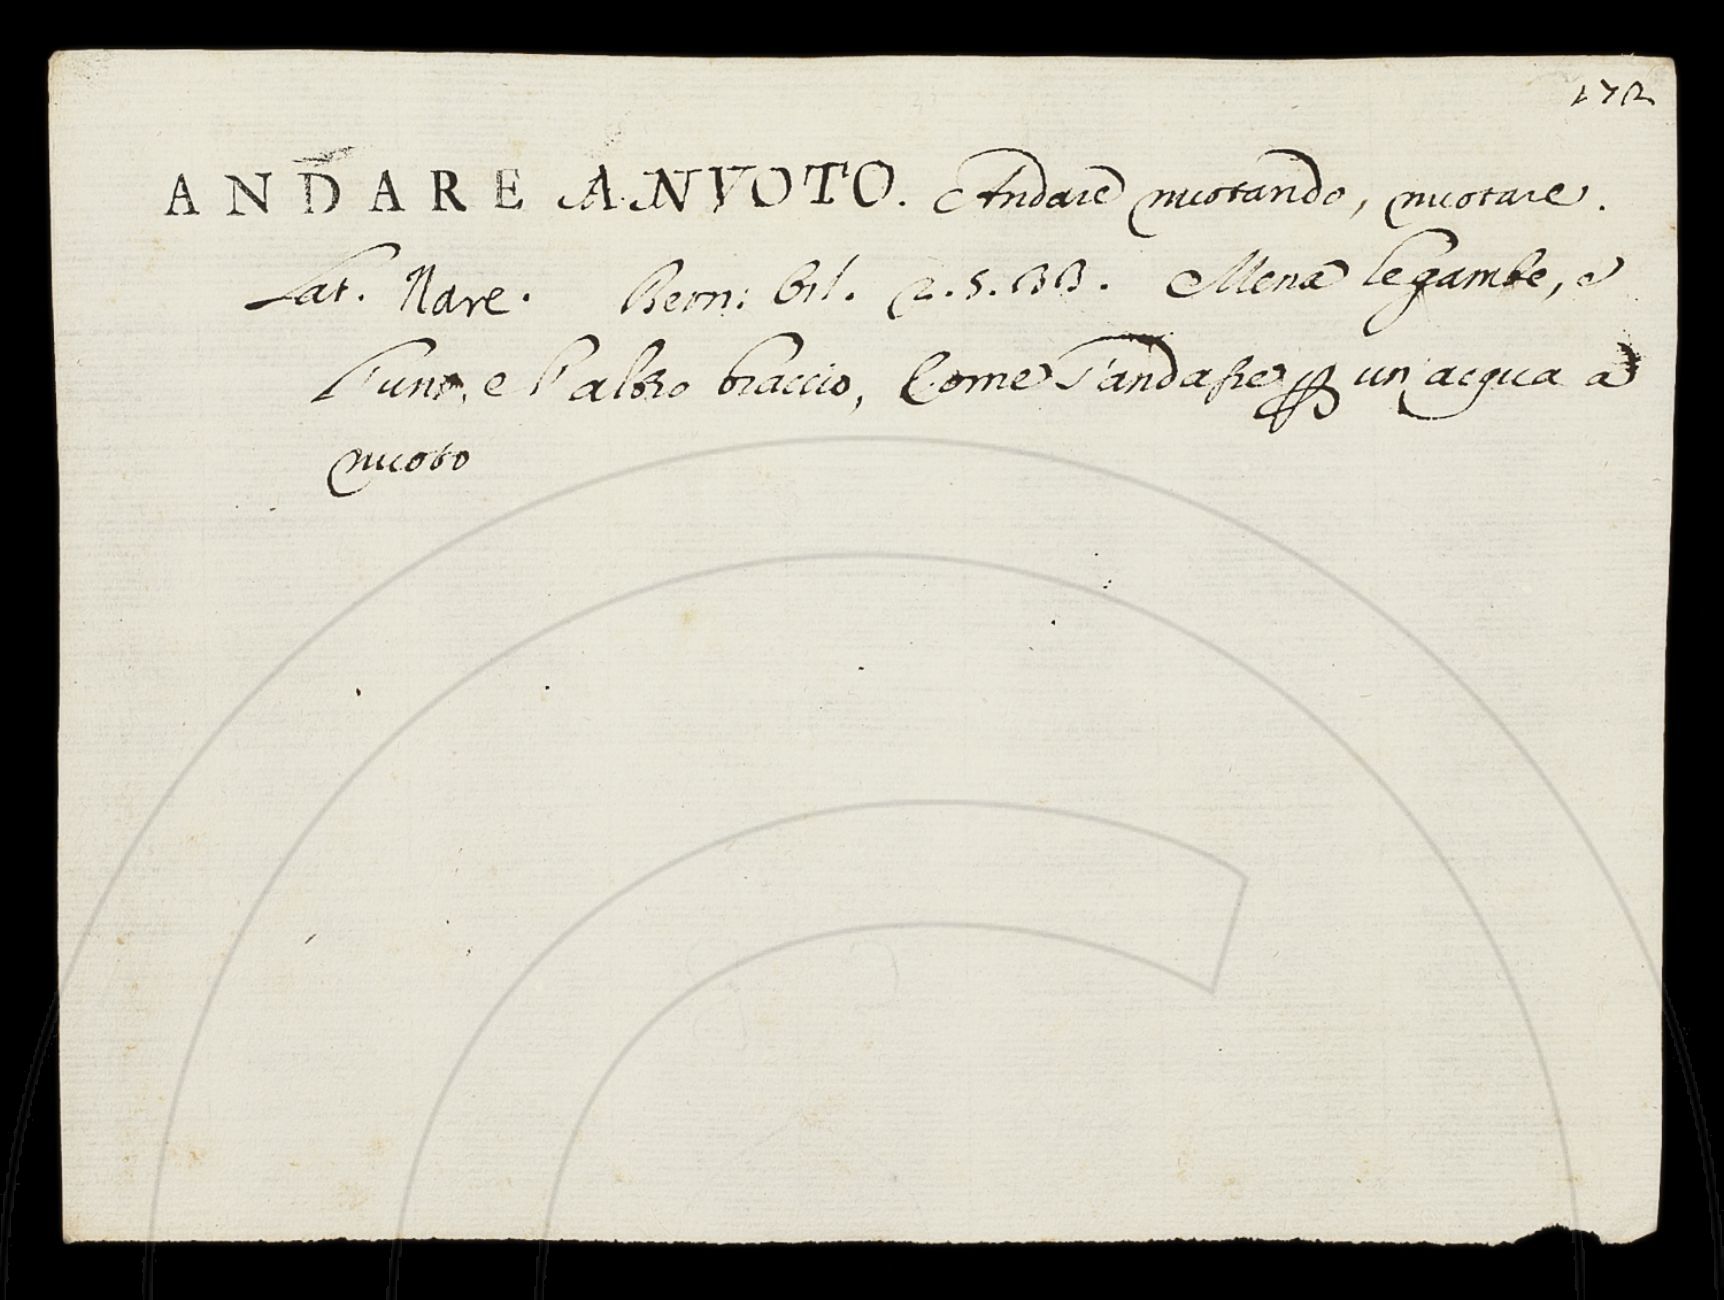 172
ANDARE A NVOTO. Andare nuotando, nuotare.
Lat. Nare. Bern: Orl. 2. 5. 33. Mena le gambe, e
l'uno, e l'altro braccio, Come s'andasse p un'acqua a
nuoto